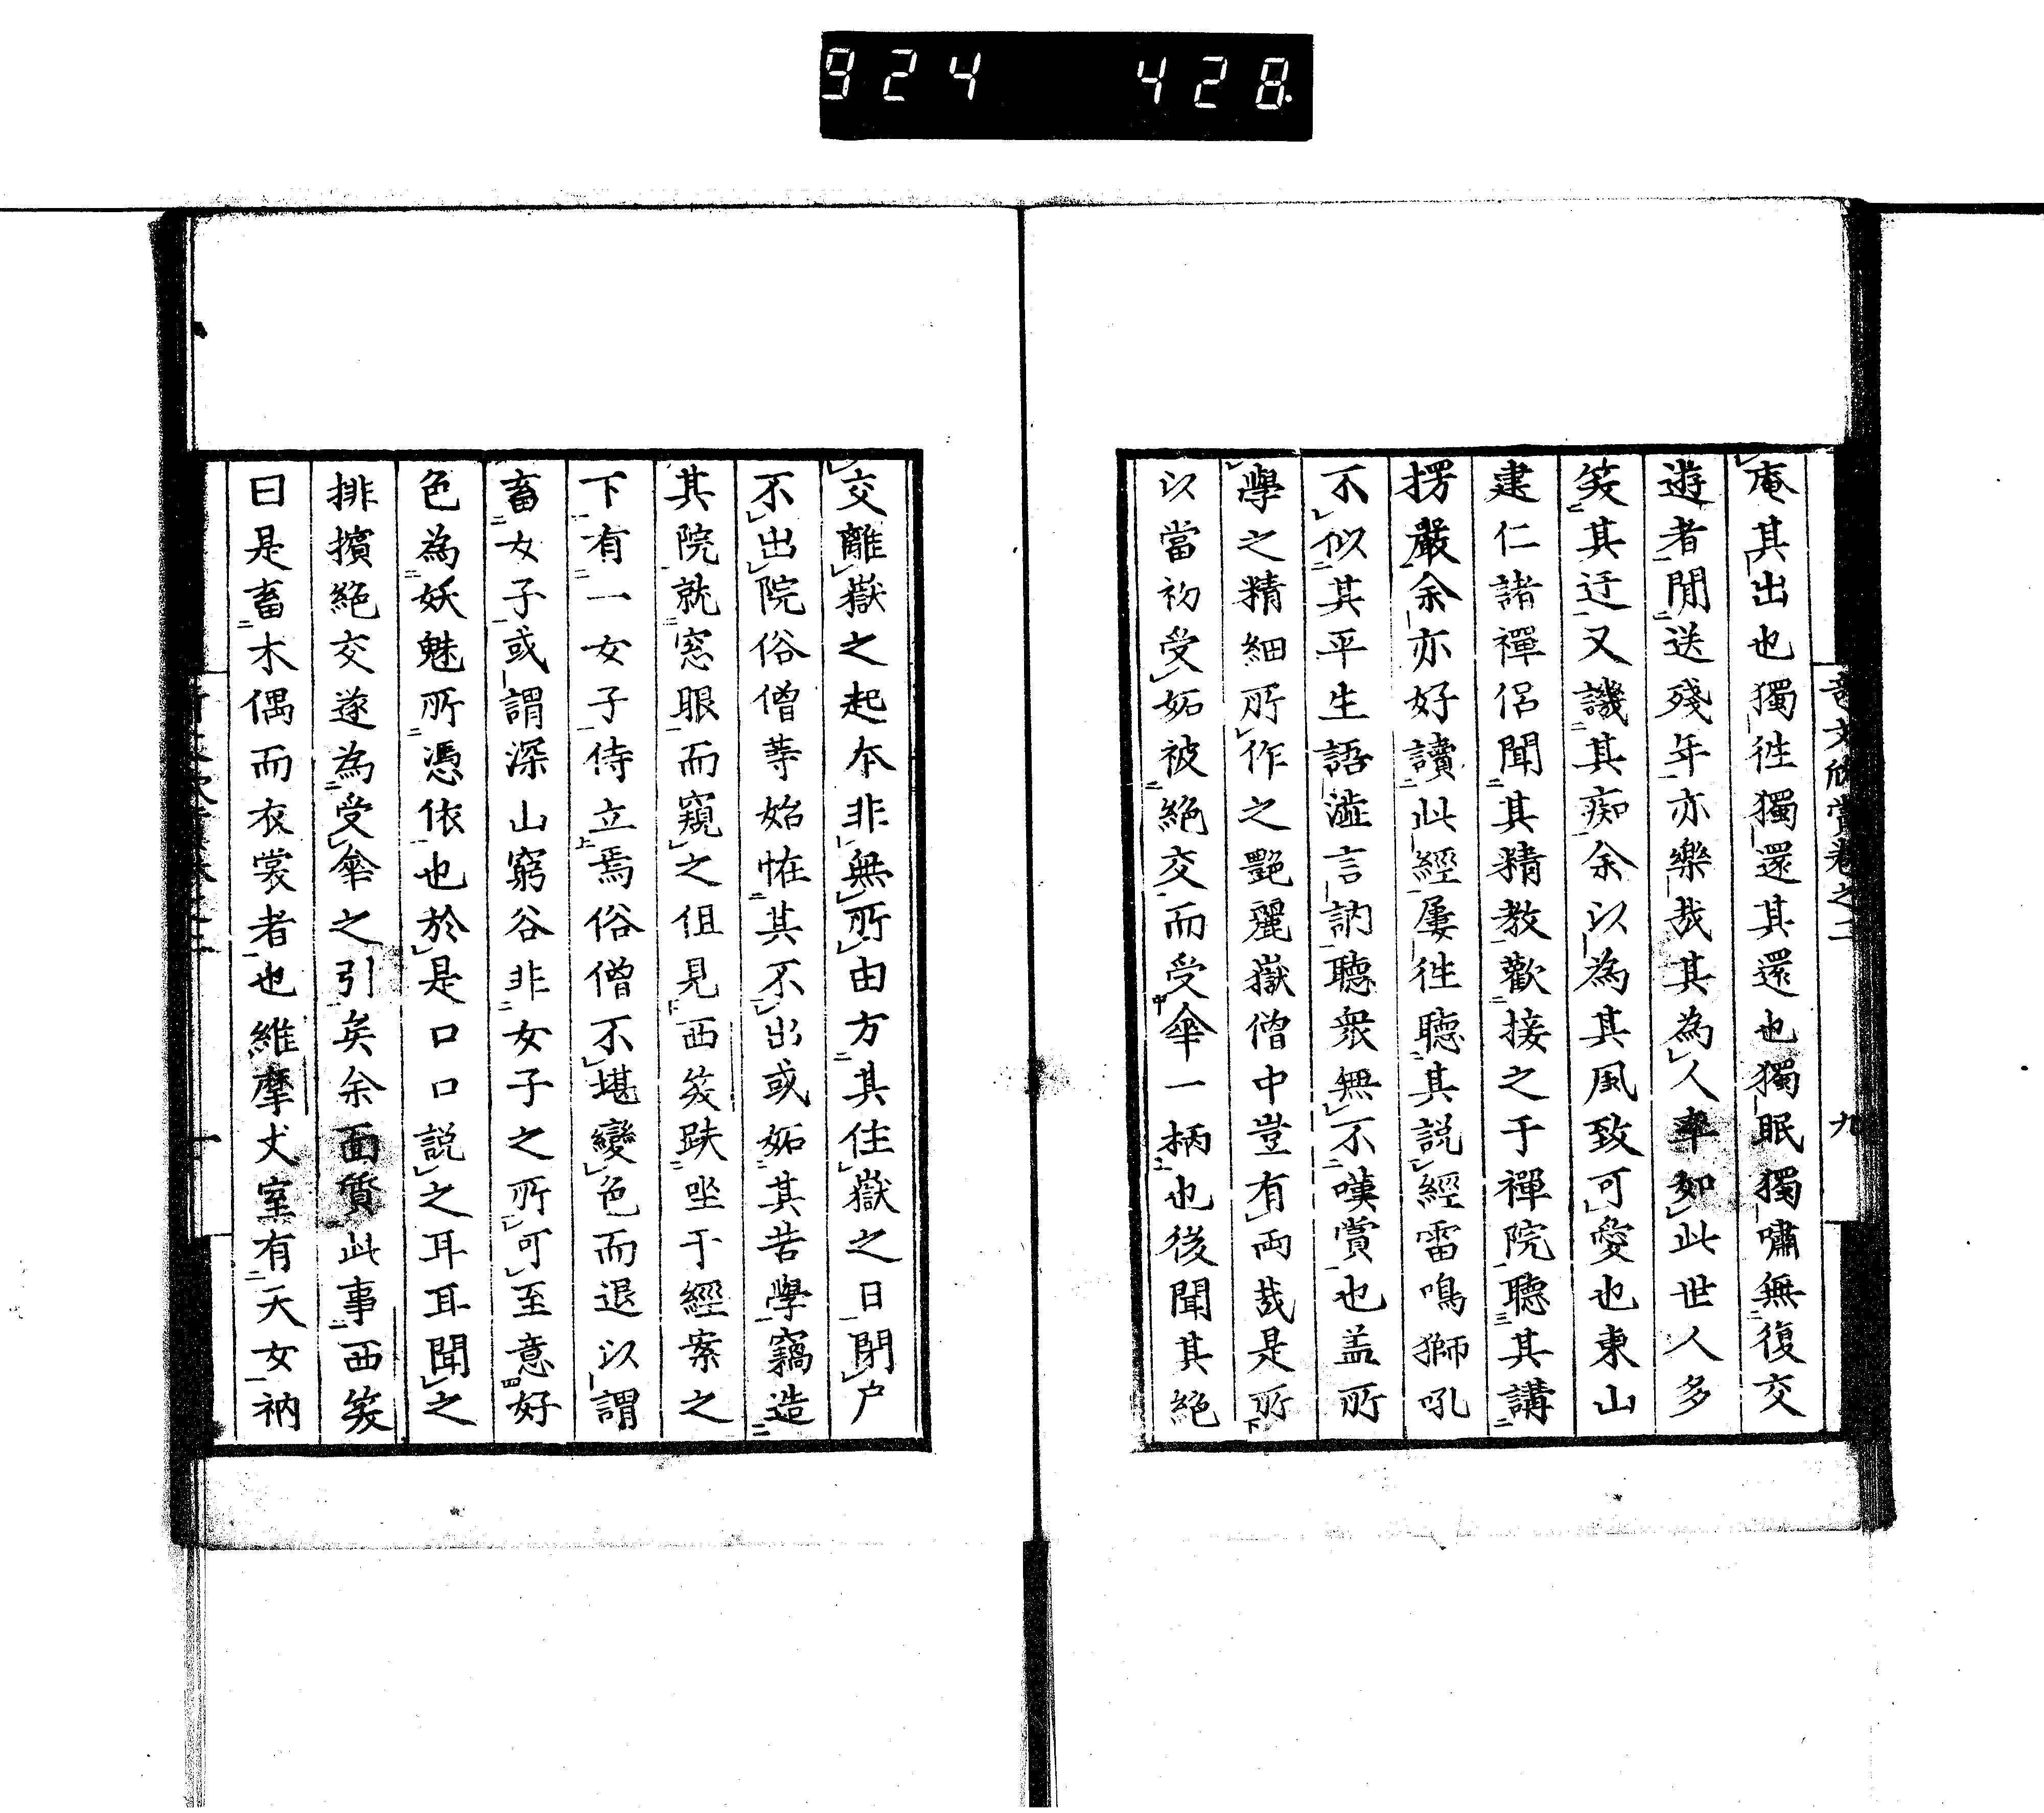 924 428
庵其出也獨徃獨還其還也獨眠獨嘯無復交
遊者閒送殘年亦樂哉其為人率如此世人多
笑其迂又譏其痴余以為其風致可愛也東山
建仁諸禪侶聞其精教歡接之于禪院聽其講
楞嚴余亦好讀此經屢徃聽其説經雷鳴獅吼
不似其平生語澁言訥聽衆無不嘆賞也盖所
學之精細所作之艷麗嶽僧中豈有両哉是所
以當初受妬被絕交而受傘一柄也後聞其絕
交離嶽之起本非無所由方其住嶽之日閉户
不出院俗僧等始怪其不出或妬其苦學竊造
其院就窓眼而窺之但見西笑趺坐于經案之
下有一女子侍立焉俗僧不堪變色而退以謂
畜女子或謂深山窮谷非女子之所可至意好
色為妖魅所憑依也於是口口説之耳耳聞之
排擯絕交遂為受傘之引矣余面質此事西笑
曰是畜木偶而衣裳者也維摩丈室有天女衲
卷之二
九